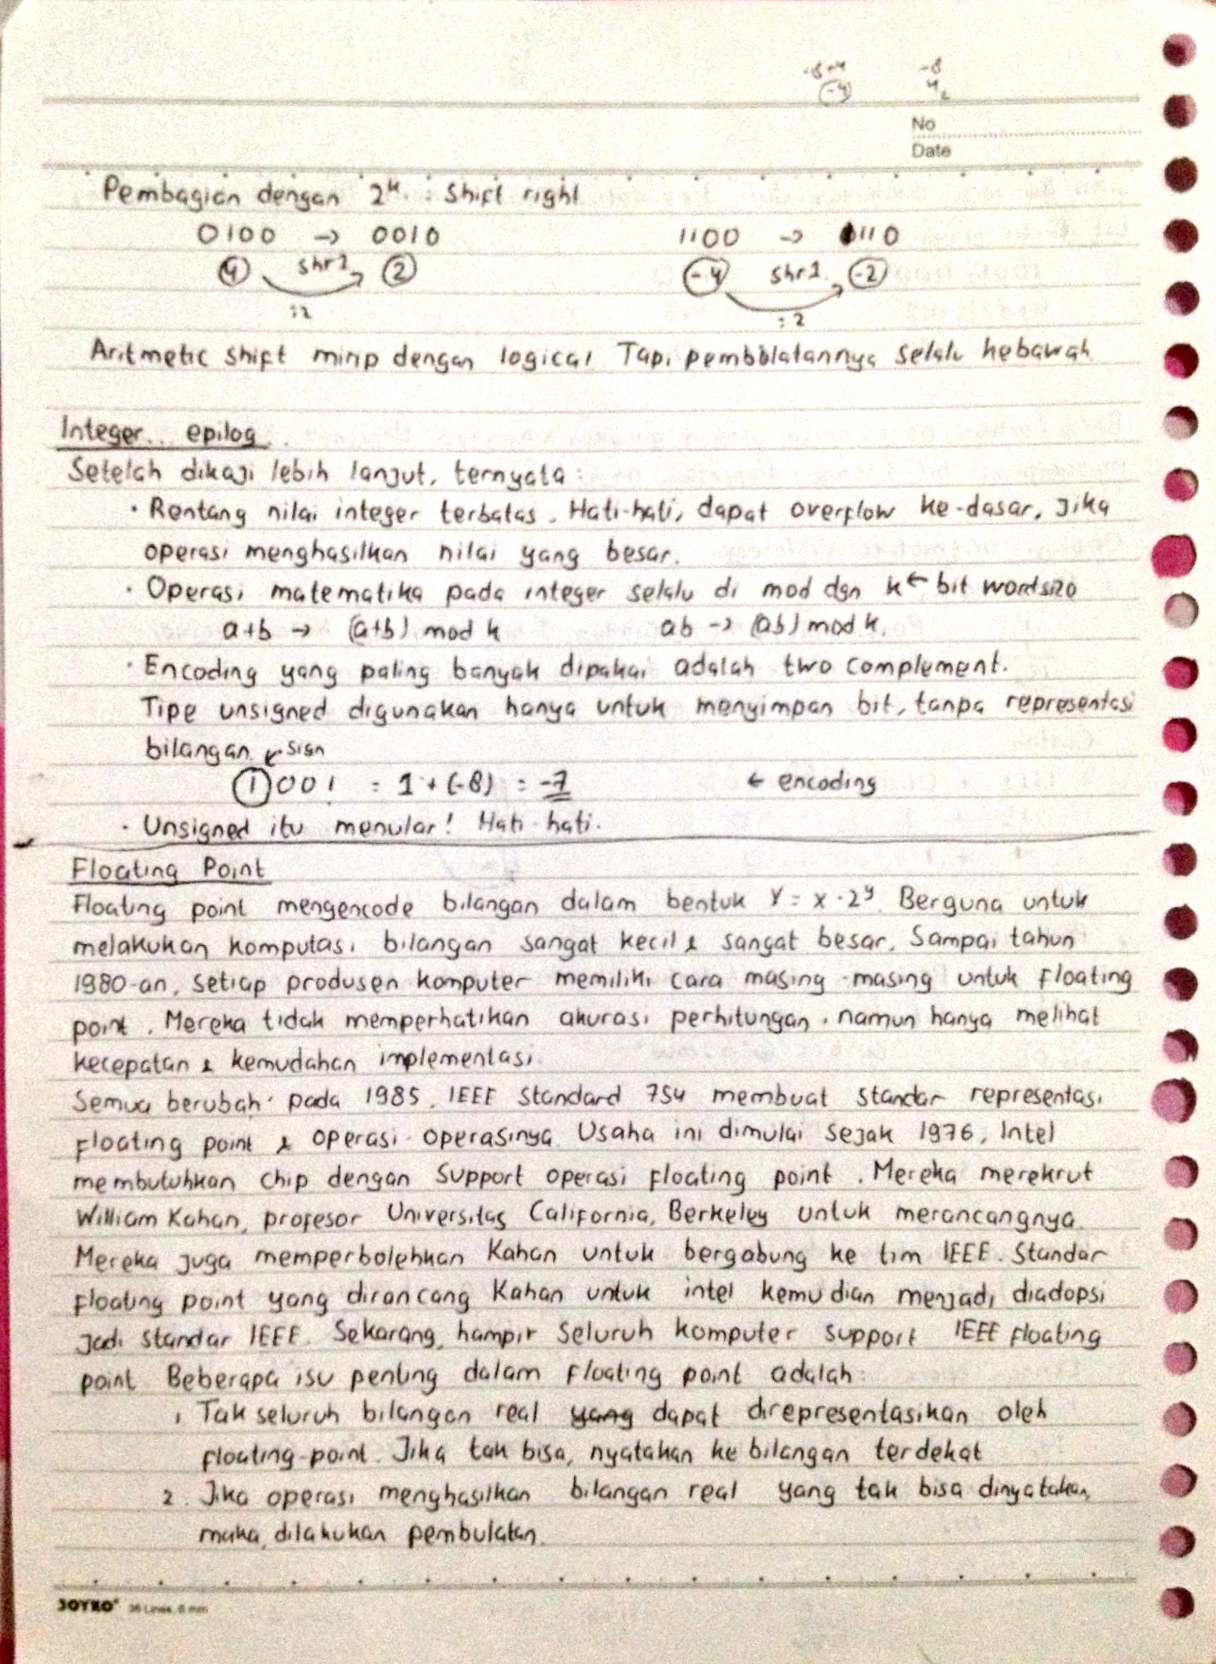 -8+4 -8
-4 4
No
Date
Pembagian dengan 2ᵏ : Shift right
0100 → 0010 1100 → 1110
4 shr 1 2 -4 shr 1 -2
:2 :2
Aritmetic shift mirip dengan logical Tapi pembulatannya selalu kebawah
Integer epilog
Setelah dikaji lebih lanjut, ternyata :
· Rentang nilai integer terbatas. Hati-hati, dapat overflow ke-dasar, jika
operasi menghasilkan nilai yang besar.
· Operasi matematika pada integer selalu di mod dgn k ← bit wordsize
a+b → (a+b) mod k ab → (ab) mod k.
· Encoding yang paling banyak dipakai adalah two complement.
Tipe unsigned digunakan hanya untuk menyimpan bit, tanpa representasi
bilangan ↙ Sign
1001 = 1 + (-8) = -7 ← encoding
· Unsigned itu menular! Hati-hati.
Floating Point
Floating point mengencode bilangan dalam bentuk V = x · 2ʸ. Berguna untuk
melakukan komputasi bilangan sangat kecil & sangat besar. Sampai tahun
1980-an, setiap produsen komputer memiliki cara masing-masing untuk floating
point. Mereka tidak memperhatikan akurasi perhitungan, namun hanya melihat
kecepatan & kemudahan implementasi.
Semua berubah pada 1985. IEEE Standard 754 membuat standar representasi
floating point & operasi-operasinya. Usaha ini dimulai sejak 1976, Intel
membutuhkan chip dengan support operasi floating point. Mereka merekrut
William Kahan, profesor Universitas California, Berkeley untuk merancangnya.
Mereka juga memperbolehkan Kahan untuk bergabung ke tim IEEE. Standar
floating point yang dirancang Kahan untuk intel kemudian menjadi diadopsi
jadi standar IEEE. Sekarang, hampir seluruh komputer support IEEE floating
point Beberapa isu penting dalam floating point adalah:
1. Tak seluruh bilangan real yang dapat direpresentasikan oleh
floating-point. Jika tak bisa, nyatakan ke bilangan terdekat
2. Jika operasi menghasilkan bilangan real yang tak bisa dinyatakan,
maka, dilakukan pembulatan.
JOYKO 36 Lines, 6 mm